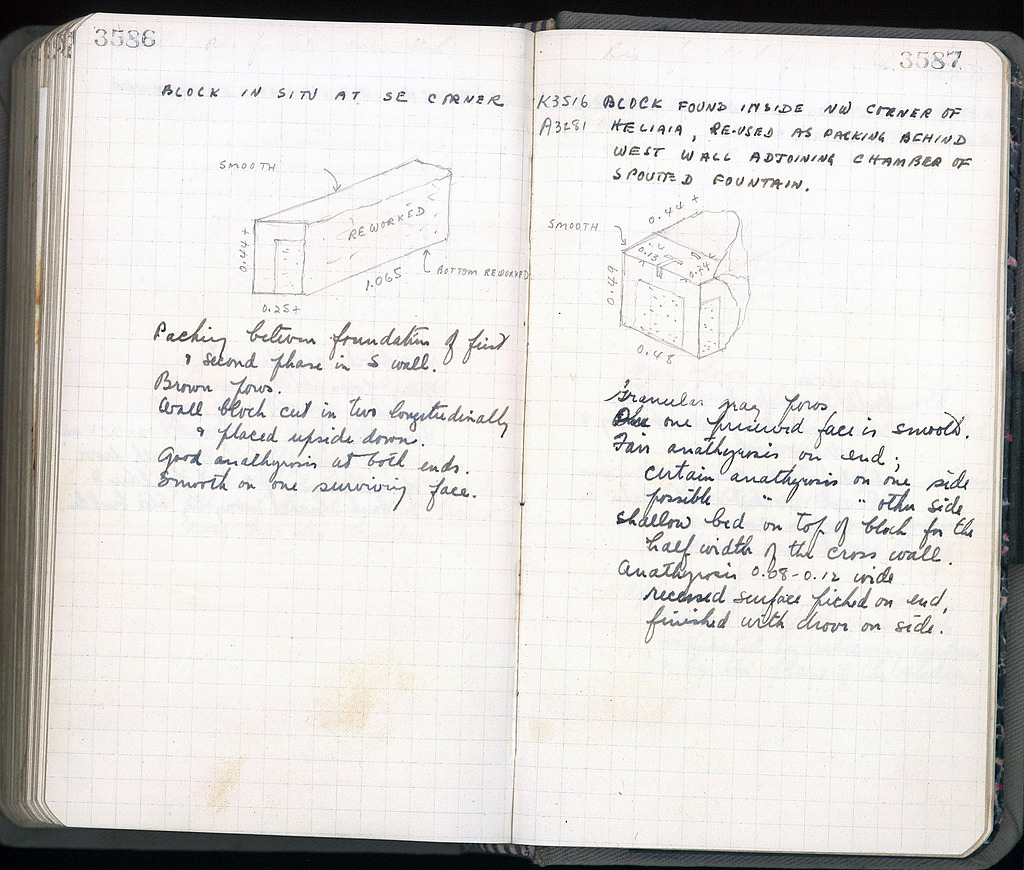 3586
BLOCK IN SITU AT SE CORNER
SMOOTH
REWORKED
0.44+
1.065
BOTTOM REWORKED
0.25+
Packing between foundation of first
& second phase in S wall.
Brown poros.
Wall block cut in two longitudinally
& placed upside down.
Good anathyrosis at both ends.
Smooth on one surviving face.
3587
K3516 BLOCK FOUND INSIDE NW CORNER OF
A3281 HELIAIA, RE-USED AS PACKING BEHIND
WEST WALL ADJOINING CHAMBER OF
SPOUTED FOUNTAIN.
0.44+
SMOOTH
0.13
0.74
0.49
0.48
Granular gray poros
one preserved face is smooth.
Fair anathyrosis on end;
certain anathyrosis on one side
possible " " other side
Shallow bed on top of block for the
half width of the cross wall.
Anathyrosis 0.08-0.12 wide
recessed surface picked on end,
finished with drove on side.